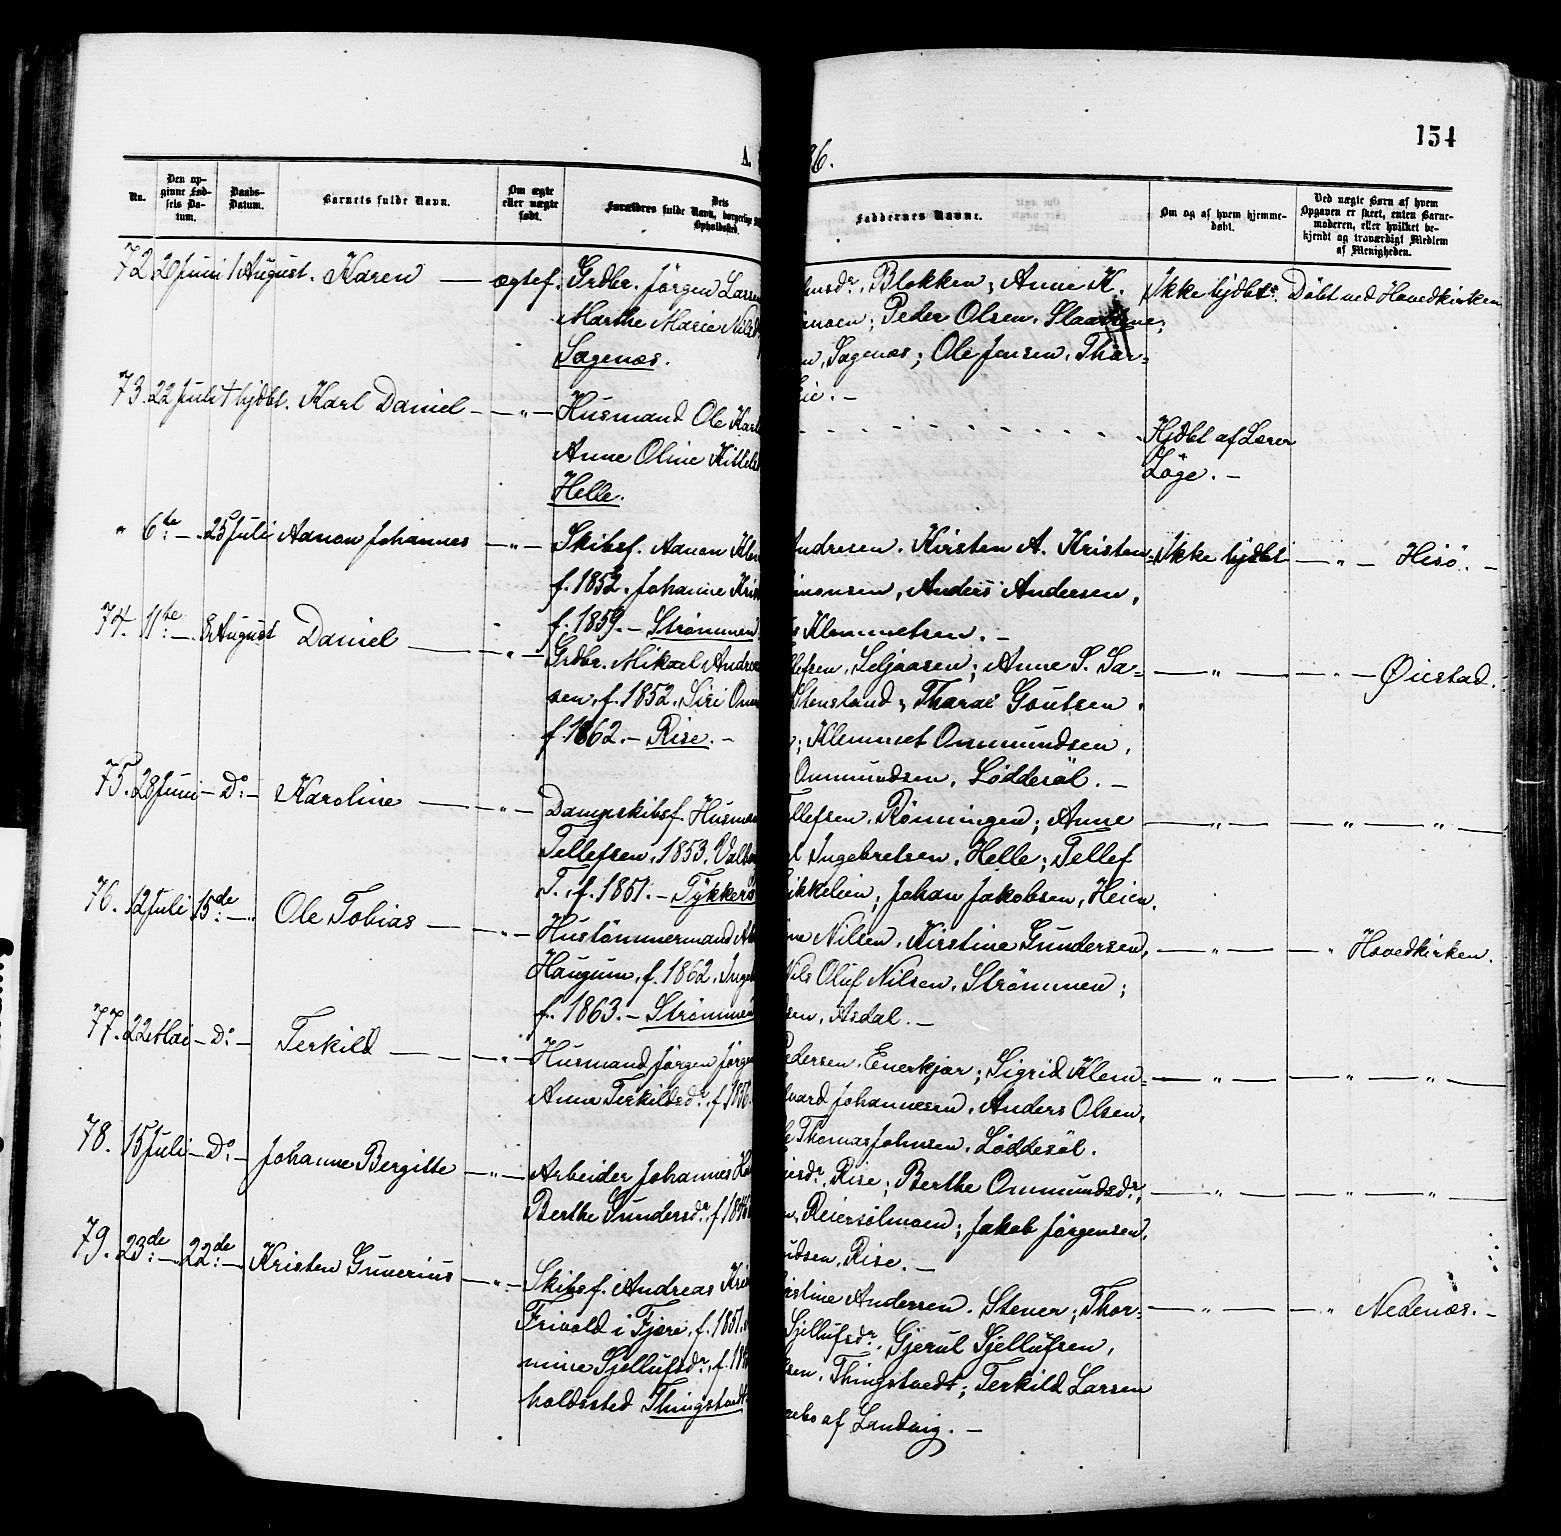 154
A.
86.
Nr.
Den op-
givne Fød-
sels Da-
tum.
Daabs-
Datum.
Barnets fulde Navn.
Om ægte
eller uægte
født.
Dets
Forældres fulde Navn, borgerlige
Opholdssted.
Faddernes Navne.
Om og af hvem hjemme-
døbt.
Ved uægte Børn af hvem
Opgaven er skeet, enten Barne-
moderen, eller hvilket be-
kjendt og troværdigt Medlem
af Menigheden.
72. 20 Juni 1 August. Karen — ægtef. Grdbr. Jörgen Larsen
Marthe Marie Nilsd
Sagenæs.
dr. Blokken; Anne K. Ikke hjdbt. Döbt ved Hovedkirken
moen; Peder Olsen, Slaattene;
n, Sagenæs; Ole Jensen, Thor=
lie. —
73. 22 Juli † hjdbt. Karl Daniel — „ — Husmand Ole Karl
Anne Oline Kittels
Helle.
Hjdbt af Lærer
Löge. —
„ 6te — 25 Juli Adnon Johannes — „ — Skibsf. Adnon Klem
f. 1852. Johanne Krist
f. 1859. — Strømmen
Andresen. Kirsten A. Kristen= Ikke hjdbt — „ — Hisö. —
imonsen, Anders Andersen,
s Klemmetsen. —
74. 11te — 8 August Daniel — „ — Grdbr. Mikael Andrea
sen, f. 1852. Siri Om
f. 1862. — Rise. —
llefsen, Seljaasen; Anne S. Sa= — „ — — „ — Øiestad.
Stensland; Tharal Goutsen
; Klemmet Ommundsen,
Ommundsen, Løddesöl. —
75. 28 Juni — Do. — Karoline — „ — Dampskibsf. Husman
Tellefsen, 1853. Valb
T., f. 1851. — Tykkers
ellefsen, Rönningen; Anne — „ — — „ — „ —
l Ingebretsen, Helle; Tellef
Mikkelien; Johan Jakobsen, Heien.
76. 12 Juli 15de — Ole Tobias — „ — Hustömmermand A
Haugum, f. 1862. Inge
f. 1863. — Strømmen
ine Nilsen, Kirstine Gundersen, — „ — — „ Hovedkirken.
Nils Oluf Nilsen, Strömmen;
sen, Asdal. —
77. 22 Mai — Do. — Terkild — „ — Husmand Jörgen Jörge
Anne Terkildsdr. f. 1856.
Pedersen, Enerkjær; Sigrid Klem= — „ — — „ — „ —
vard Johannesen, Anders Olsen,
Thomas Johnsen, Løddesöl.
78. 15 Juli — Do. — Johanne Bergitte — „ — Arbeider Johannes
Berthe Gundersdr. f. 184
dr. Rise; Berthe Ommundsdr., — „ — — „ — „ —
n, Reiersölmoen; Jakob Jörgensen,
undsen, Rise. —
79. 23de — 22de — Kristen Gunerius — „ — Skibsf. Andreas Kris
Frivold i Fjære, f. 1851.
mine Gjellufsdr., f. 18
holdssted Thingstvedt
istine Andersen, Stener; Thor= — „ — — „ Nedenæs. —
Gjellufsdr., Gjerul Gjellufsen,
sen, Thingstvedt; Terkild Larsen
af Landvig. —